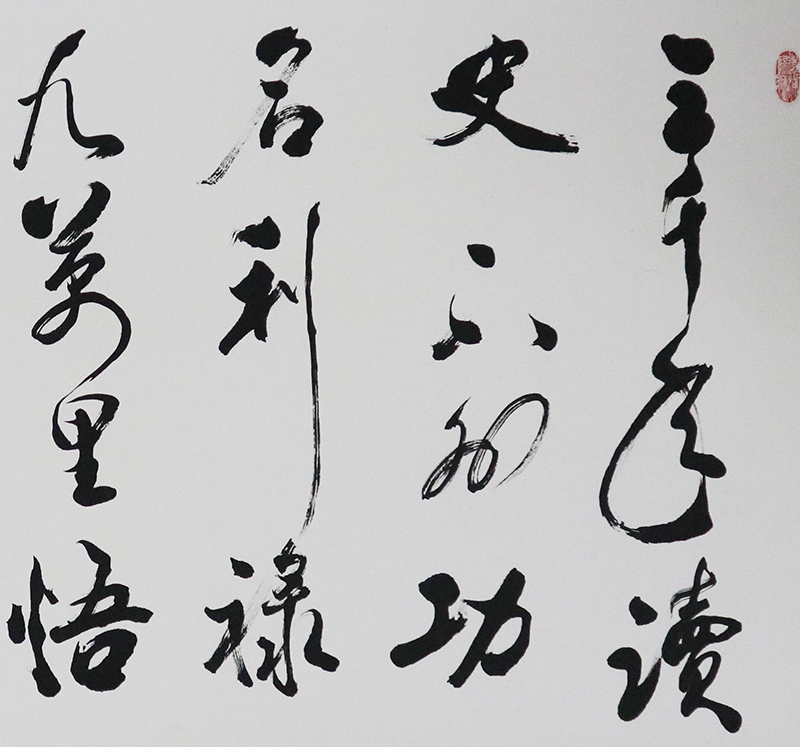 三千年讀
史不外功
名利祿
九萬里悟